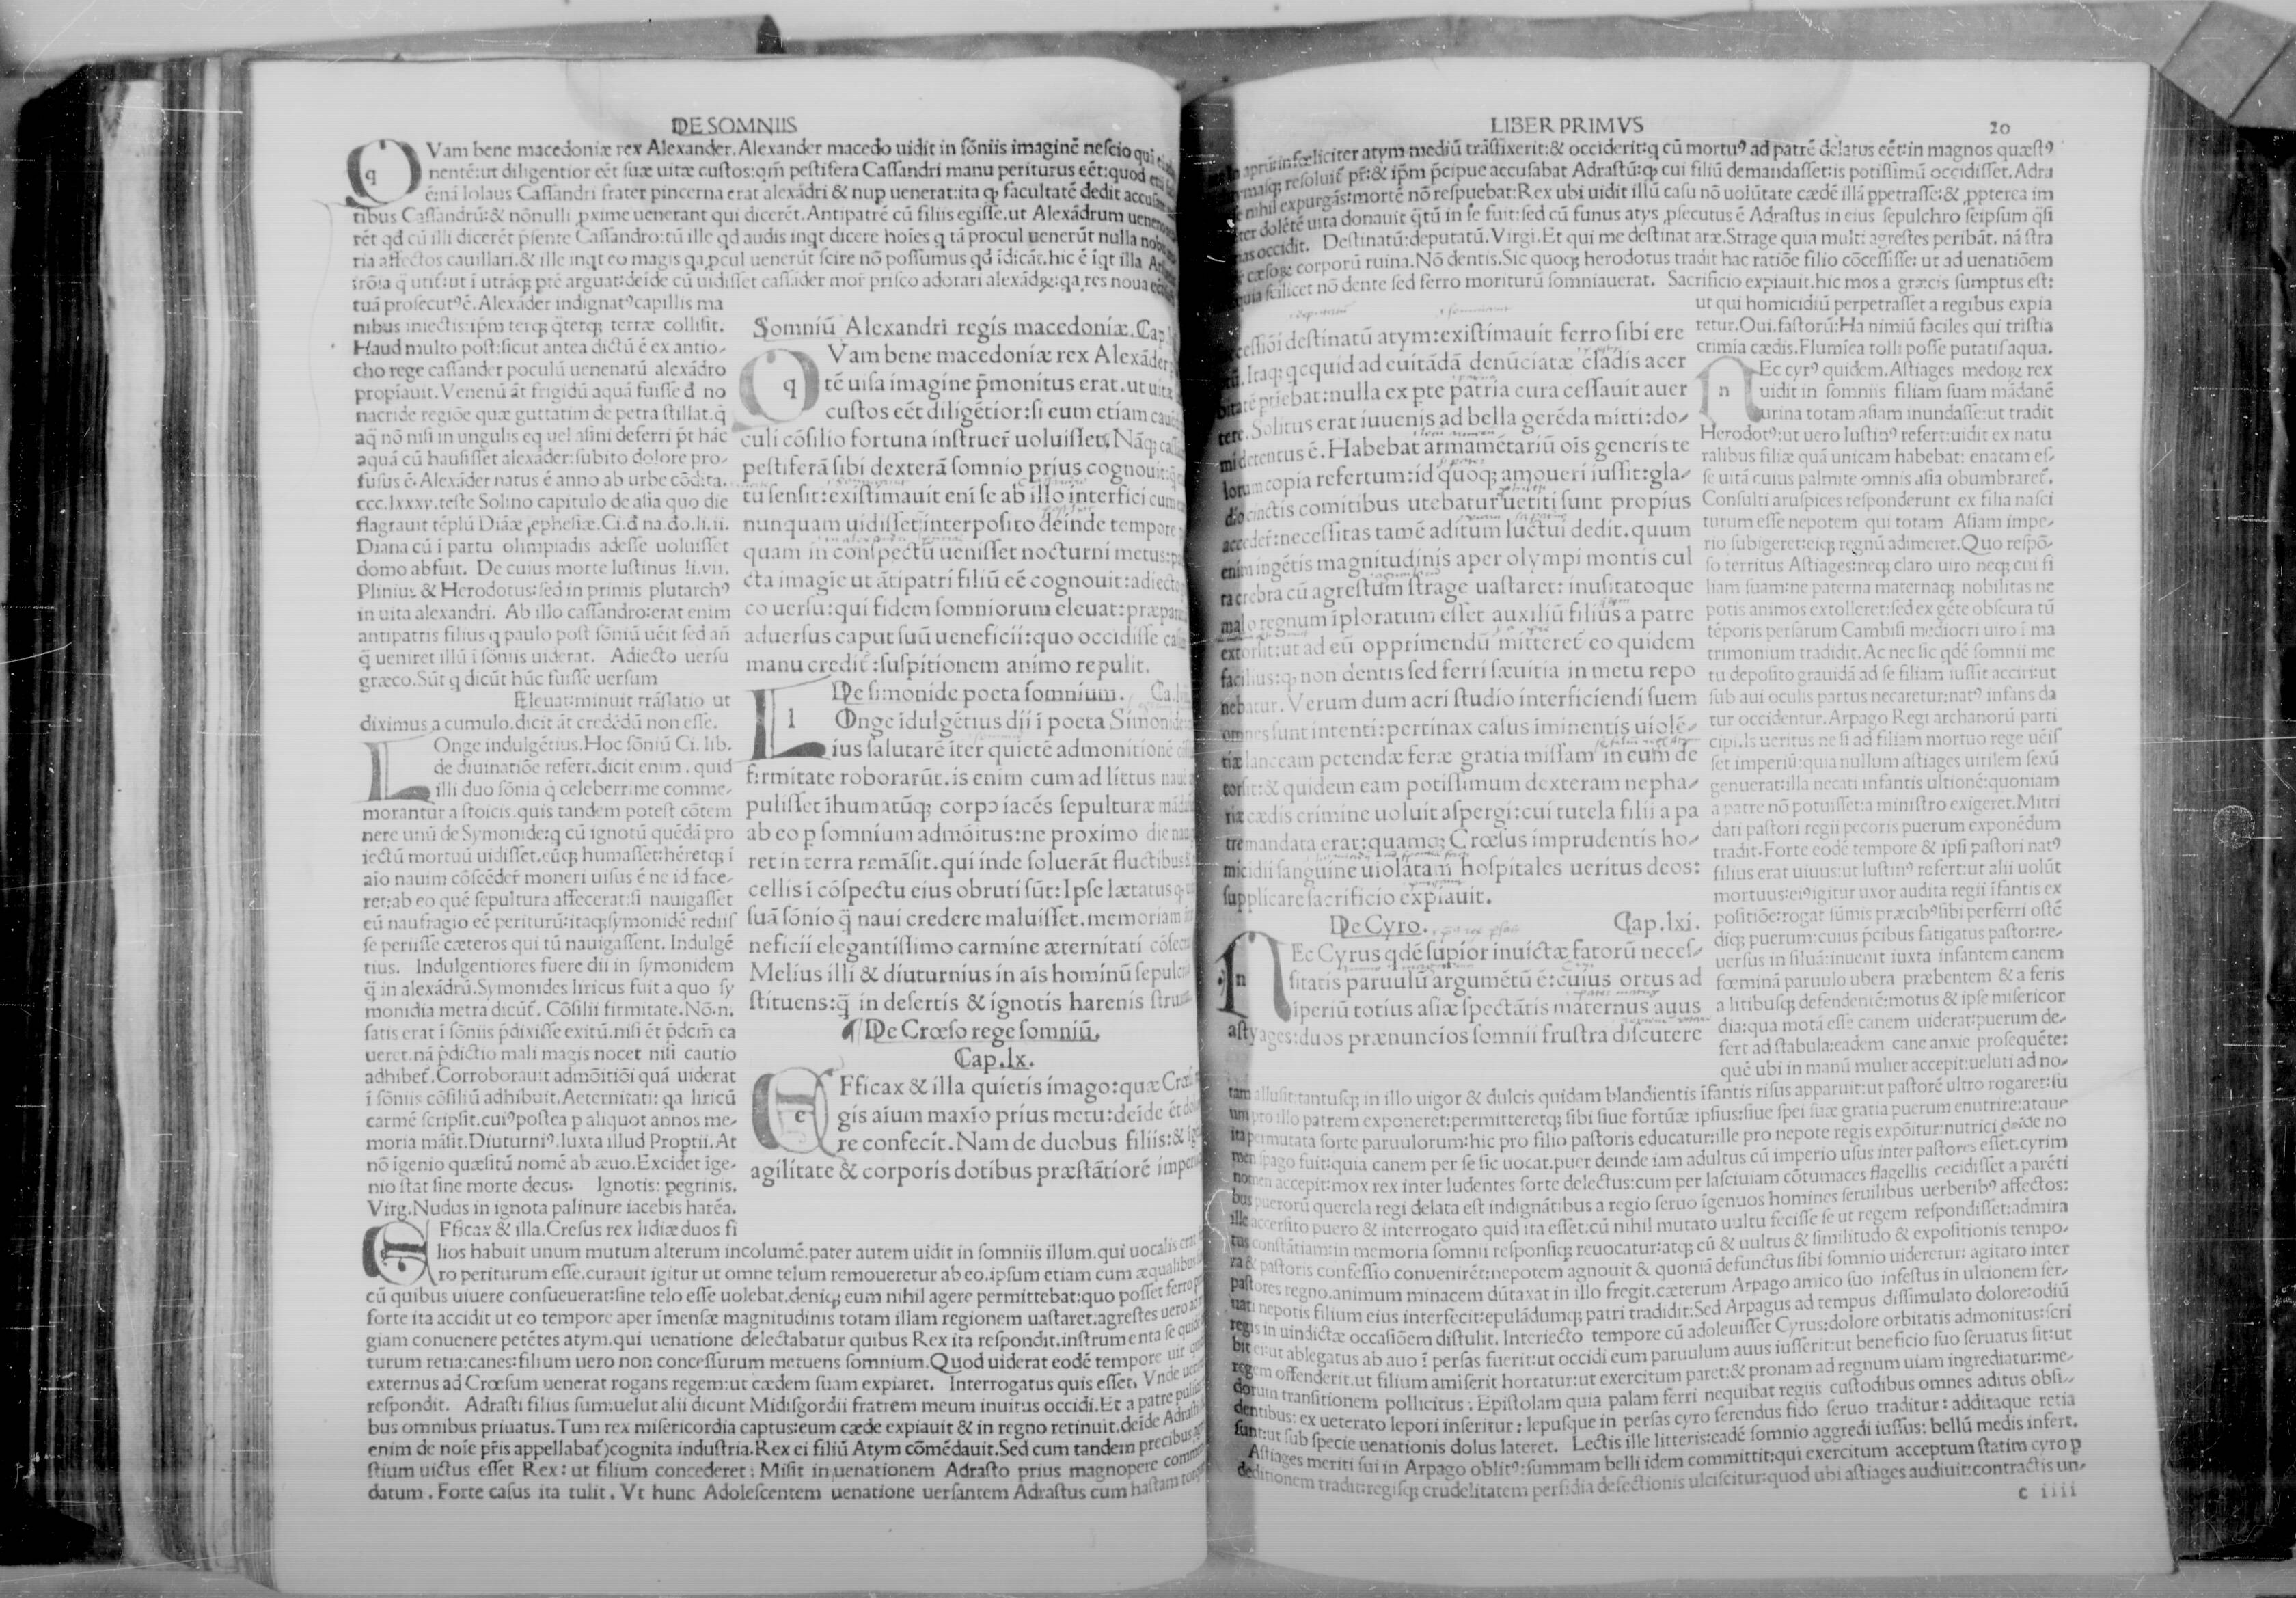 DE SOMNIIS
QVam bene macedoniæ rex Alexander.Alexander macedo uidit in sōniis imaginē nescio
nentē:ut diligentior eēt suæ uitæ custos: pestifera Cassandri manu periturus eēt:quod
ē:nā Iolaus Cassandri frater pincerna erat alexādri & nup uenerat:ita facultatē dedit
tibus Cassandrū:& nōnulli ꝓxime uenerant qui dicerēt.Antipatrē cū filiis egisse,ut Alexādrum
rēt qđ cū illi dicerēt p̄sente Cassandro:tū ille qđ audis inqt dicere hoīes q tā procul uenerūt nulla
ria affectos cauillari.& ille inqt eo magis qa ꝓcul uenerūt scire nō possumus qđ
tuā ꝓsecut⁹ē.Alexāder indignat⁹capillis ma
nibus iniectis:ip̄m terqꝫ q̄terqꝫ terræ collisit.
Haud multo post:sicut antea dictū ē ex antio-
cho rege cassander poculū uenenatū alexādro
propīauit.Venenū āt frigidū aquā fuisse đ no
nacride regiōe quæ guttatim de petra stillat.q̄
aq̄ nō nisi in ungulis eq uel asini deferri p̄t hāc
aquā cū hausisset alexāder:subito dolore pro-
fusus ē.Alexāder natus ē anno ab urbe cōdita.
ccc.lxxxv.teste Solino capitulo de asia quo die
flagrauit tēplū Diāæ ephesiæ.Ci.đ na.đo.li.ii.
Diana cū i partu olimpiadis adesse uoluisset
domo abfuit. De cuius morte Iustinus li.vii.
Plinius & Herodotus:sed in primis plutarch⁹
in uita alexandri. Ab illo cassandro:erat enim
antipatris filius q paulo post sōniū uēit sed an̄
q̄ ueniret illū ī sōniis uiderat. Adiecto uersu
græco.Sūt q dicūt hūc fuisse uersum
Eleuat:minuit trāslatio ut
diximus a cumulo.dicit āt credēdū non esse.
LOnge indulgētius.Hoc sōniū Ci. lib.
de diuinatiōe refert.dicit enim. quid
illi duo sōnia q̄ celeberrime comme-
morantur a stoicis.quis tandem potest cōtem
nere unū de Symonide:q cū ignotū quēdā pro
iectū mortuū uidisset.eūqꝫ humasset:hēretqꝫ ī
aīo nauim cōscēder̄ moneri uisus ē ne id face-
ret:ab eo quē sepultura affecerat:si nauigasset
eū naufragio eē periturū:itaqꝫsymonidē rediis
se periisse cæteros qui tū nauigassent. Indulgē
tius. Indulgentiores fuere dii in symonidem
q̄ in alexādrū.Symonides liricus fuit a quo sy
monidia metra dicūt̄. Cōsilii firmitate. Nō.n.
satis erat ī sōniis p̄dixisse exitū.nisi ēt p̄dcīn̄ ca
ueret.nā p̄dictio mali magis nocet nisi cautio
adhibet̄.Corroborauit admōitiōi quā uiderat
ī sōniis cōsiliū adhibuit.Aeternitati: qa liricū
carmē scripsit.cui⁹postea p aliquot annos me-
moria māsit.Diuturni⁹.Iuxta illud Proptii.At
nō igenio quæsitū nomē ab æuo.Excidet ige-
nio stat sine morte decus. Ignotis: pegrinis.
Virg.Nudus in ignota palinure iacebis harēa.
EFficax & illa.Cresus rex lidiæ duos fi
lios habuit unum mutum alterum incolumē.pater autem uidit in somniis illum.qui uocalis erat
ro periturum esse.curauit igitur ut omne telum remoueretur ab eo.ipsum etiam cum æqualibus
cū quibus uiuere consueuerat:sine telo esse uolebat.deniqꝫ eum nihil agere permittebat:quo posset ferro
forte ita accidit ut eo tempore aper īmensæ magnitudinis totam illam regionem uastaret.agrestes uero
giam conuenere petētes atym.qui uenatione delectabatur quibus Rex ita respondit.instrumenta se
turum retia:canes:filium uero non concessurum metuens somnium.Quod uiderat eodē tempore uir
externus ad Crœsum uenerat rogans regem:ut cædem suam expiaret. Interrogatus quis esset. Vnde
respondit. Adrasti filius sum:uelut alii dicunt Midisgordii fratrem meum inuitus occidi.Et a patre
bus omnibus priuatus.Tum rex misericordia captus:eum cæde expiauit & in regno retinuit.deide
enim de noīe p̄ris appellabat̄)cognita industria.Rex ei filiū Atym cōmēdauit.Sed cum tandem precibus
stium uictus esset Rex:ut filium concederet: Misit in uenationem Adrasto prius magnopere
datum. Forte casus ita tulit. Vt hunc Adolescentem uenatione uersantem Adrastus cum hastam
Somniū Alexandri regis macedoniæ.Cap.
QVam bene macedoniæ rex Alexāder
tē uisa imagine p̄monitus erat.ut uitæ
custos eēt diligētior:si eum etiam
culi cōsilio fortuna instruer̄ uoluisset. Nāqꝫ
pestiferā sibi dexterā somnio prius cognouit:
tu sensit:existimauit enī se ab illo interfici cum
nunquam uidisset:interposito deinde tempore
quam in conspectū uenisset nocturni metus:
cta imagīe ut ātipatri filiū eē cognouit:adiecto
co uersu:qui fidem somniorum eleuat:
aduersus caput suū ueneficii:quo occidisse
manu credit̄:suspitionem animo repulit.
De simonide poeta somnium.
LOnge idulgētius dii ī poeta
ius salutarē iter quietē admonitionē
firmitate roborarūt.is enim cum ad littus
pulisset īhumatūqꝫ corpꝰ iacēs sepulturæ
ab eo p somnium admōitus:ne proximo die
ret in terra remāsit.qui inde soluerāt fluctibus
cellis ī cōspectu eius obruti sūt:Ipse lætatus
suā sōnio q̄ naui credere maluisset.memoriam
neficii elegantissimo carmine æternitati
Melius illi & diuturnius in aīs hominū
stituens:q̄ in desertis & ignotis harenis
¶ De Crœso rege somniū.
Cap.lx.
EFficax & illa quietis imago:quæ
gis aīum maxīo prius metu:deide ēt
re confecit.Nam de duobus filiis:&
agilitate & corporis dotibus præstātiorē
LIBER PRIMVS
20
infœliciter atym mediū trāsfixerit:& occiderit:q cū mortu⁹ ad patrē delatus eēt:in magnos quæst⁹
resoluit̄ pr̄:& ip̄m p̄cipue accusabat Adrastū:qꝫ cui filiū demandasset:is potissimū occidisset.Adra
nihil expurgās:mortē nō respuebat:Rex ubi uidit illū casu nō uolūtate cædē illā ppetrasse:& ꝓpterea im
dolētē uita donauit q̄tū in se fuit:sed cū funus atys ꝓsecutus ē Adrastus in eius sepulchro seipsum q̄si
occidit. Destinatū:deputatū.Virgi.Et qui me destinat aræ.Strage quia multi agrestes peribāt. nā stra
corporū ruina.Nō dentis.Sic quoqꝫ herodotus tradit hac ratiōe filio cōcessisse: ut ad uenatiōem
quia scilicet nō dente sed ferro moriturū somniauerat. Sacrificio expiauit.hic mos a græcis sumptus est:
ut qui homicidiū perpetrasset a regibus expia
retur.Oui.fastorū:Ha nimiū faciles qui tristia
crimīa cædis.Flumīea tolli posse putatis aqua.
NEc cyr⁹ quidem.Astiages medoꝝ rex
uidit in somniis filiam suam mādanē
urina totam asiam inundasse:ut tradit
Herodot⁹:ut uero Iustin⁹ refert:uidit ex natu
ralibus filiæ quā unicam habebat: enatam es-
se uitā cuius palmite omnis asia obumbraret̄.
Consulti aruspices responderunt ex filia nasci
turum esse nepotem qui totam Asiam impe-
rio subigeret:eiqꝫ regnū adimeret.Quo respō-
so territus Astiages:neqꝫ claro uiro neqꝫ cui si
liam suam:ne paterna maternaqꝫ nobilitas ne
potis animos extolleret:sed ex gēte obscura tū
tēporis persarum Cambisi mediocri uiro ī ma
trimonium tradidit.Ac nec sic qdē somnii me
tu deposito grauidā ad se filiam iussit acciri:ut
sub aui oculis partus necaretur:nat⁹ infans da
tur occidentur.Arpago Regi archanorū parti
cipi.Is ueritus ne si ad filiam mortuo rege uēis
set imperiū:quia nullum astiages uirilem sexū
genuerat:illa necati infantis ultionē:quoniam
a patre nō potuisset:a ministro exigeret.Mitti
dati pastori regii pecoris puerum exponēdum
tradit.Forte eodē tempore & ipsi pastori nat⁹
filius erat uiuus:ut Iustin⁹ refert:ut alii uolūt
mortuus:ei⁹igitur uxor audita regii īfantis ex
positiōe:rogat sūmis præcib⁹sibi perferri ostē
diqꝫ puerum:cuius p̄cibus fatigatus pastor:re-
uersus in siluā:inuenit iuxta infantem canem
fœminā paruulo ubera præbentem & a feris
a litibusqꝫ defendentē:motus & ipse misericor
dia:qua motā esse canem uiderat:puerum de-
fert ad stabula:eadem cane anxie prosequēte:
quē ubi in manū mulier accepit:ueluti ad no-
cessiōi destinatū atym:existimauit ferro sibi ere
Itaqꝫ qcquid ad euitādā denūciatæ cladis acer
ptiebat:nulla ex pte patria cura cessauit auer
tere.Solitus erat iuuenis ad bella gerēda mitti:do-
mi detentus ē.Habebat armamētariū oīs generis te
lorum copia refertum:id quoqꝫ amoueri iussit:gla-
dio cinctis comitibus utebatur uetiti sunt propius
acceder̄:necessitas tamē aditum luctui dedit.quum
enim ingētis magnitudinis aper olympi montis cul
ta crebra cū agrestum strage uastaret: inusitatoque
malo regnum īploratum esset auxiliū filius a patre
extorsit:ut ad eū opprimendū mitteret eo quidem
facilius:qꝫ non dentis sed ferri sæuitia in metu repo
nebatur.Verum dum acri studio interficiendi suem
omnes sunt intenti:pertinax casus iminentis uiolē-
tiæ lanceam petendæ feræ gratia missam in eum de
torsit:& quidem eam potissimum dexteram nepha-
riæ cædis crimine uoluit aspergi:cui tutela filii a pa
tre mandata erat:quamqꝫ Crœsus imprudentis ho-
micidii sanguine uiolatam hospitales ueritus deos:
supplicare sacrificio expiauit.
De Cyro. Cap.lxi.
NEc Cyrus qdē supior inuictæ fatorū neces-
sitatis paruulū argumētū ē:cuius ortus ad
iperiū totius asiæ spectātis maternus auus
astyages:duos prænuncios somnii frustra discutere
tam allusit:tantusqꝫ in illo uigor & dulcis quidam blandientis īfantis risus apparuit:ut pastorē ultro rogaret:su
um pro illo patrem exponeret:permitteretqꝫ sibi siue fortūæ ipsius:siue spei suæ gratia puerum enutrire:atque
ita permutata sorte paruulorum:hic pro filio pastoris educatur:ille pro nepote regis expōitur:nutrici deide no
men spago fuit:quia canem per se sic uocat.puer deinde iam adultus cū imperio usus inter pastores esset.cyrim
nomen accepit:mox rex inter ludentes sorte delectus:cum per lasciuiam cōtumaces flagellis cecidisset a parēti
bus puerorū querela regi delata est indignātibus a regio seruo īgenuos homines seruilibus uerberib⁹ affectos:
ille accersito puero & interrogato quid ita esset:cū nihil mutato uultu fecisse se ut regem respondisset:admira
tus constātiam:in memoria somnii responsiqꝫ reuocatur:atqꝫ cū & uultus & similitudo & expositionis tempo-
ra & pastoris confessio conuenirēt:nepotem agnouit & quoniā defunctus sibi somnio uideretur: agitato inter
pastores regno.animum minacem dūtaxat in illo fregit.cæterum Arpago amico suo infestus in ultionem ser-
uati nepotis filium eius interfecit:epulādumqꝫ patri tradidit:Sed Arpagus ad tempus dissimulato dolore:odiū
regis in uindictæ occasiōem distulit. Interiecto tempore cū adoleuisset Cyrus:dolore orbitatis admonitus:scri
bit ei:ut ablegatus ab auo ī persas fuerit:ut occidi eum paruulum auus iusserit:ut beneficio suo seruatus sit:ut
regem offenderit.ut filium amiserit hortatur:ut exercitum paret:& pronam ad regnum uiam ingrediatur:me-
dorum transitionem pollicitus. Epistolam quia palam ferri nequibat regiis custodibus omnes aditus obsi-
dentibus: ex ueterato lepori inseritur: lepusque in persas cyro ferendus fido seruo traditur: additaque retia
sunt:ut sub specie uenationis dolus lateret. Lectis ille litteris:eadē somnio aggredi iussus: bellū medis infert.
Astiages meriti sui in Arpago oblit⁹:summam belli idem committit:qui exercitum acceptum statim cyro p
deditionem tradit:regisqꝫ crudelitatem persidia defectionis ulciscitur:quod ubi astiages audiuit:contractis un-
c iiii